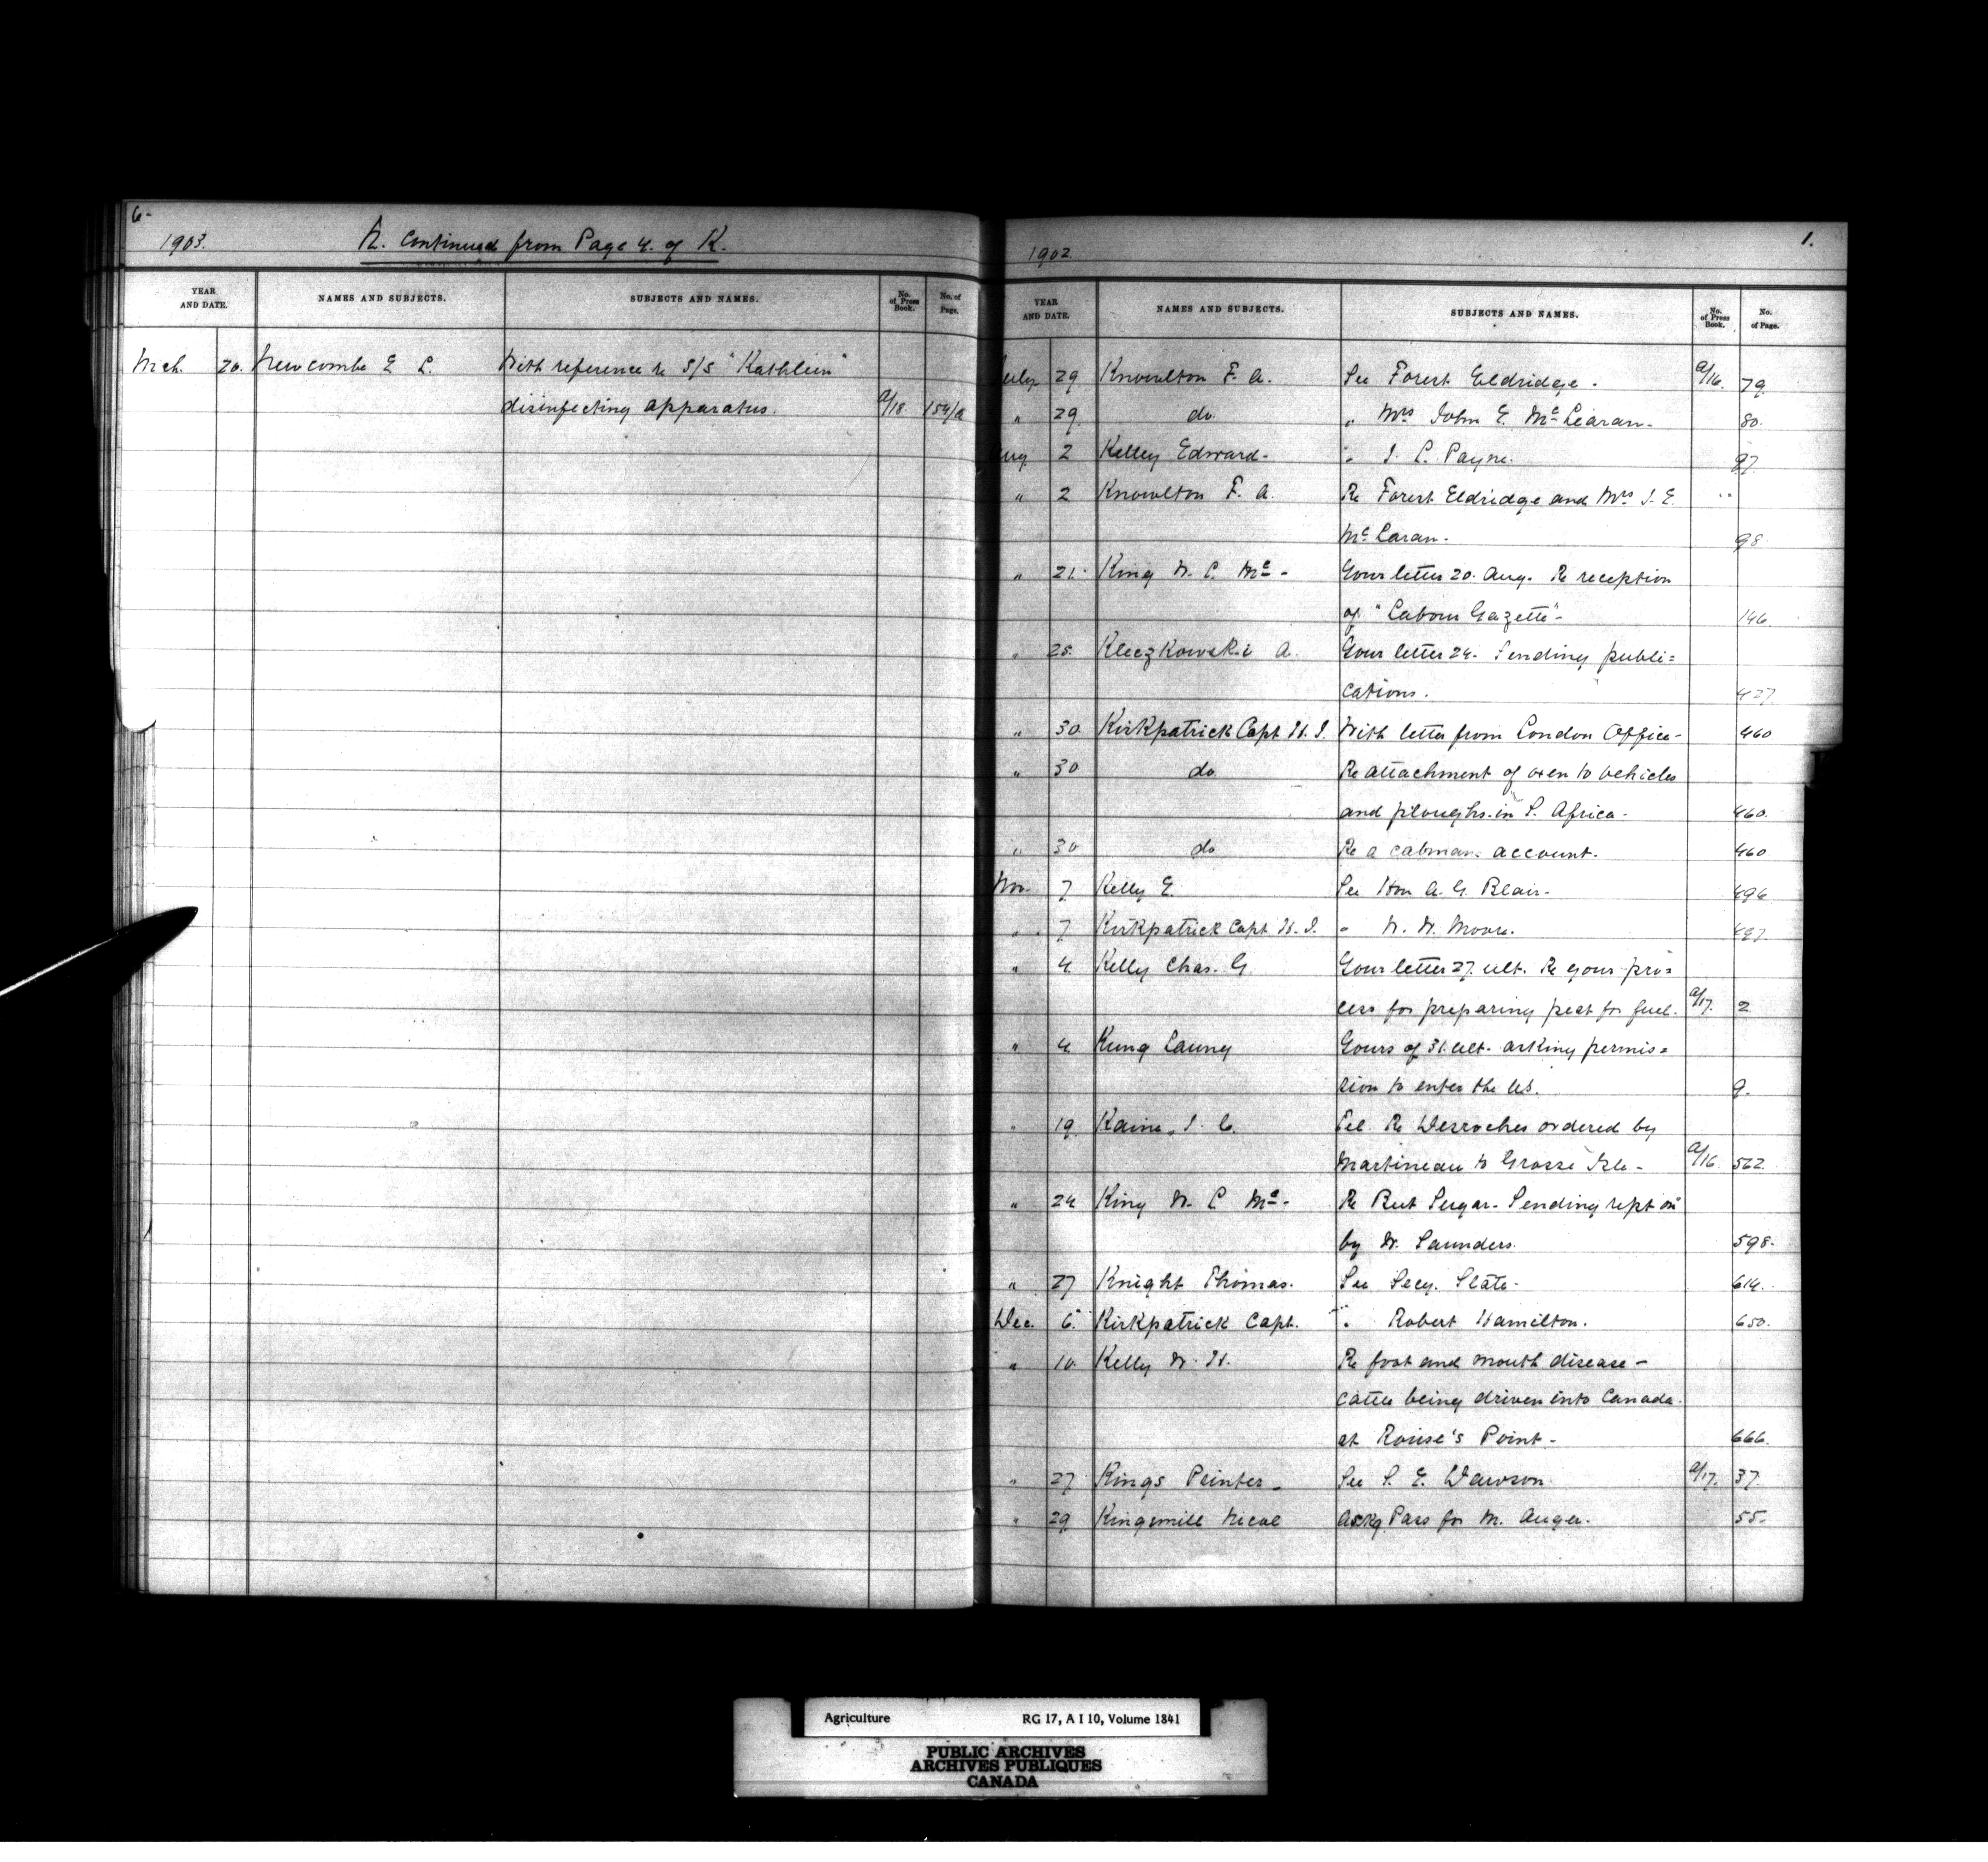 6-
1903.
N. Continued from Page 4. of K.
YEAR AND DATE. NAMES AND SUBJECTS. SUBJECTS AND NAMES. No. of Press Book. No. of Page.
Mch. 20. Newcombe E L. With reference to S/S "Kathleen"
disinfecting apparatus. a/18. 154/a
1.
1902.
YEAR AND DATE. NAMES AND SUBJECTS. SUBJECTS AND NAMES. No. of Press Book. No. of Page.
July 29 Knowlton F. A. See Forest Eldridge - a/16. 79.
" 29 do. " Mrs John E. Mc Learan - 80.
Aug 2 Kelley Edward - " J. L. Payne. 97.
" 2 Knowlton F. A. Re Forest Eldridge and Mrs J. E. "
Mc Laran - 98.
" 21. King W. L. Mc - Your letter 20. Aug. Re reception
of "Labour Gazette" - 146.
" 25. Kleczkowski A. Your letter 24. Sending publi=
cations. 427
" 30 Kirkpatrick Capt H. J. With letter from London Office - 460
" 30 do. Re attachment of oxen to vehicles
and ploughs in S. Africa - 460.
" 30 do Re a cabmans account. 460
Nov. 7 Kelly E. See Hon A. G. Blair - 496
" 7 Kirkpatrick Capt H. J. " W. W. Moore. 497.
" 4. Kelly Chas. G. Your letter 27. ult. Re your pro=
cess for preparing peat for fuel. a/17. 2.
" 4. Kung Laung Yours of 31. ult. asking permis=
sion to enter the US. 9.
" 19. Kaine J. C. Tel. Re Desroches ordered by
Martineau to Grosse Isle - a/16. 562.
" 24 King W. L Mc - Re Beet Sugar - Sending rept on
by W. Saunders. 598.
" 27 Knight Thomas. See Secy. State - 614.
Dec. 6. Kirkpatrick Capt. " Robert Hamilton. 650.
" 10. Kelly W. H. Re foot and mouth disease -
cattle being driven into Canada.
at Rouse's Point - 666.
" 27 Kings Printer - See S. E. Dawson. a/17. 37.
" 29 Kingsmill Nicol Askg Pass for M. Auger. 55.
Agriculture RG 17, A I 10, Volume 1841
PUBLIC ARCHIVES
ARCHIVES PUBLIQUES
CANADA